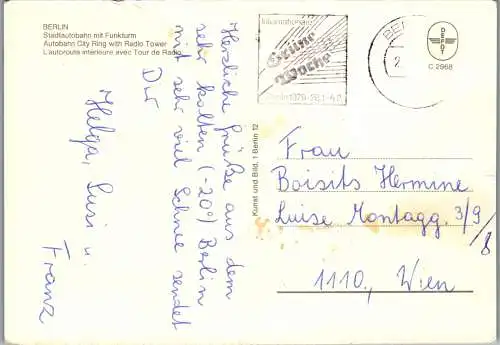 BERLIN
Stadtautobahn mit Funkturm
Autobahn City Ring with Radio Tower
L'autoroute intérieure avec Tour de Radio
Herzliche Grüße aus dem
sehr kalten (-20°) Berlin
mit sehr viel Schnee sendet
Dir
Helga, Susi u.
Franz
Kunst und Bild, 1 Berlin 12
Internationale
Grüne
Woche
Berlin 1979 · 26.1.-4.2.
BERLIN
2
DEPOT
C 2968
Frau
Boisits Hermine
Luise Montagg. 3/9
/8
1110, Wien